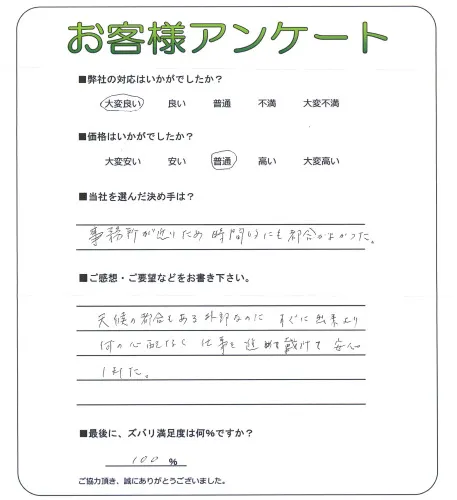 お客様アンケート
■弊社の対応はいかがでしたか？
大変良い 良い 普通 不満 大変不満
■価格はいかがでしたか？
大変安い 安い 普通 高い 大変高い
■当社を選んだ決め手は？
事務所が近いため 時間的にも都合がよかった。
■ご感想・ご要望などをお書き下さい。
天候の都合もある外部なのに すぐに出来
何の心配なく 仕事を進めて戴けて 安心
した。
■最後に、ズバリ満足度は何％ですか？
100 %
ご協力頂き、誠にありがとうございました。